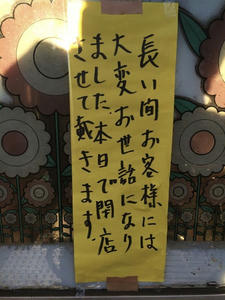 長い間お客様には
大変お世話になり
ました。本日で閉店
させて戴きます。